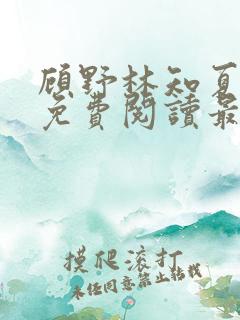 顾野林知夏
免費閱讀最
摸爬滚打
未经同意禁止转载